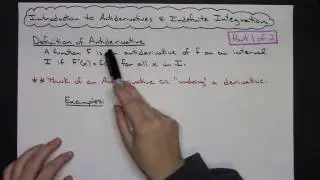 Introduction to Antiderivatives & Indefinite Integration
Part 1 of 2
Definition of Antiderivative
A function F is an antiderivative of f on an interval
I if F'(x) = f for all x in I.
** Think of an Antiderivative as "undoing" a derivative.
Examples: